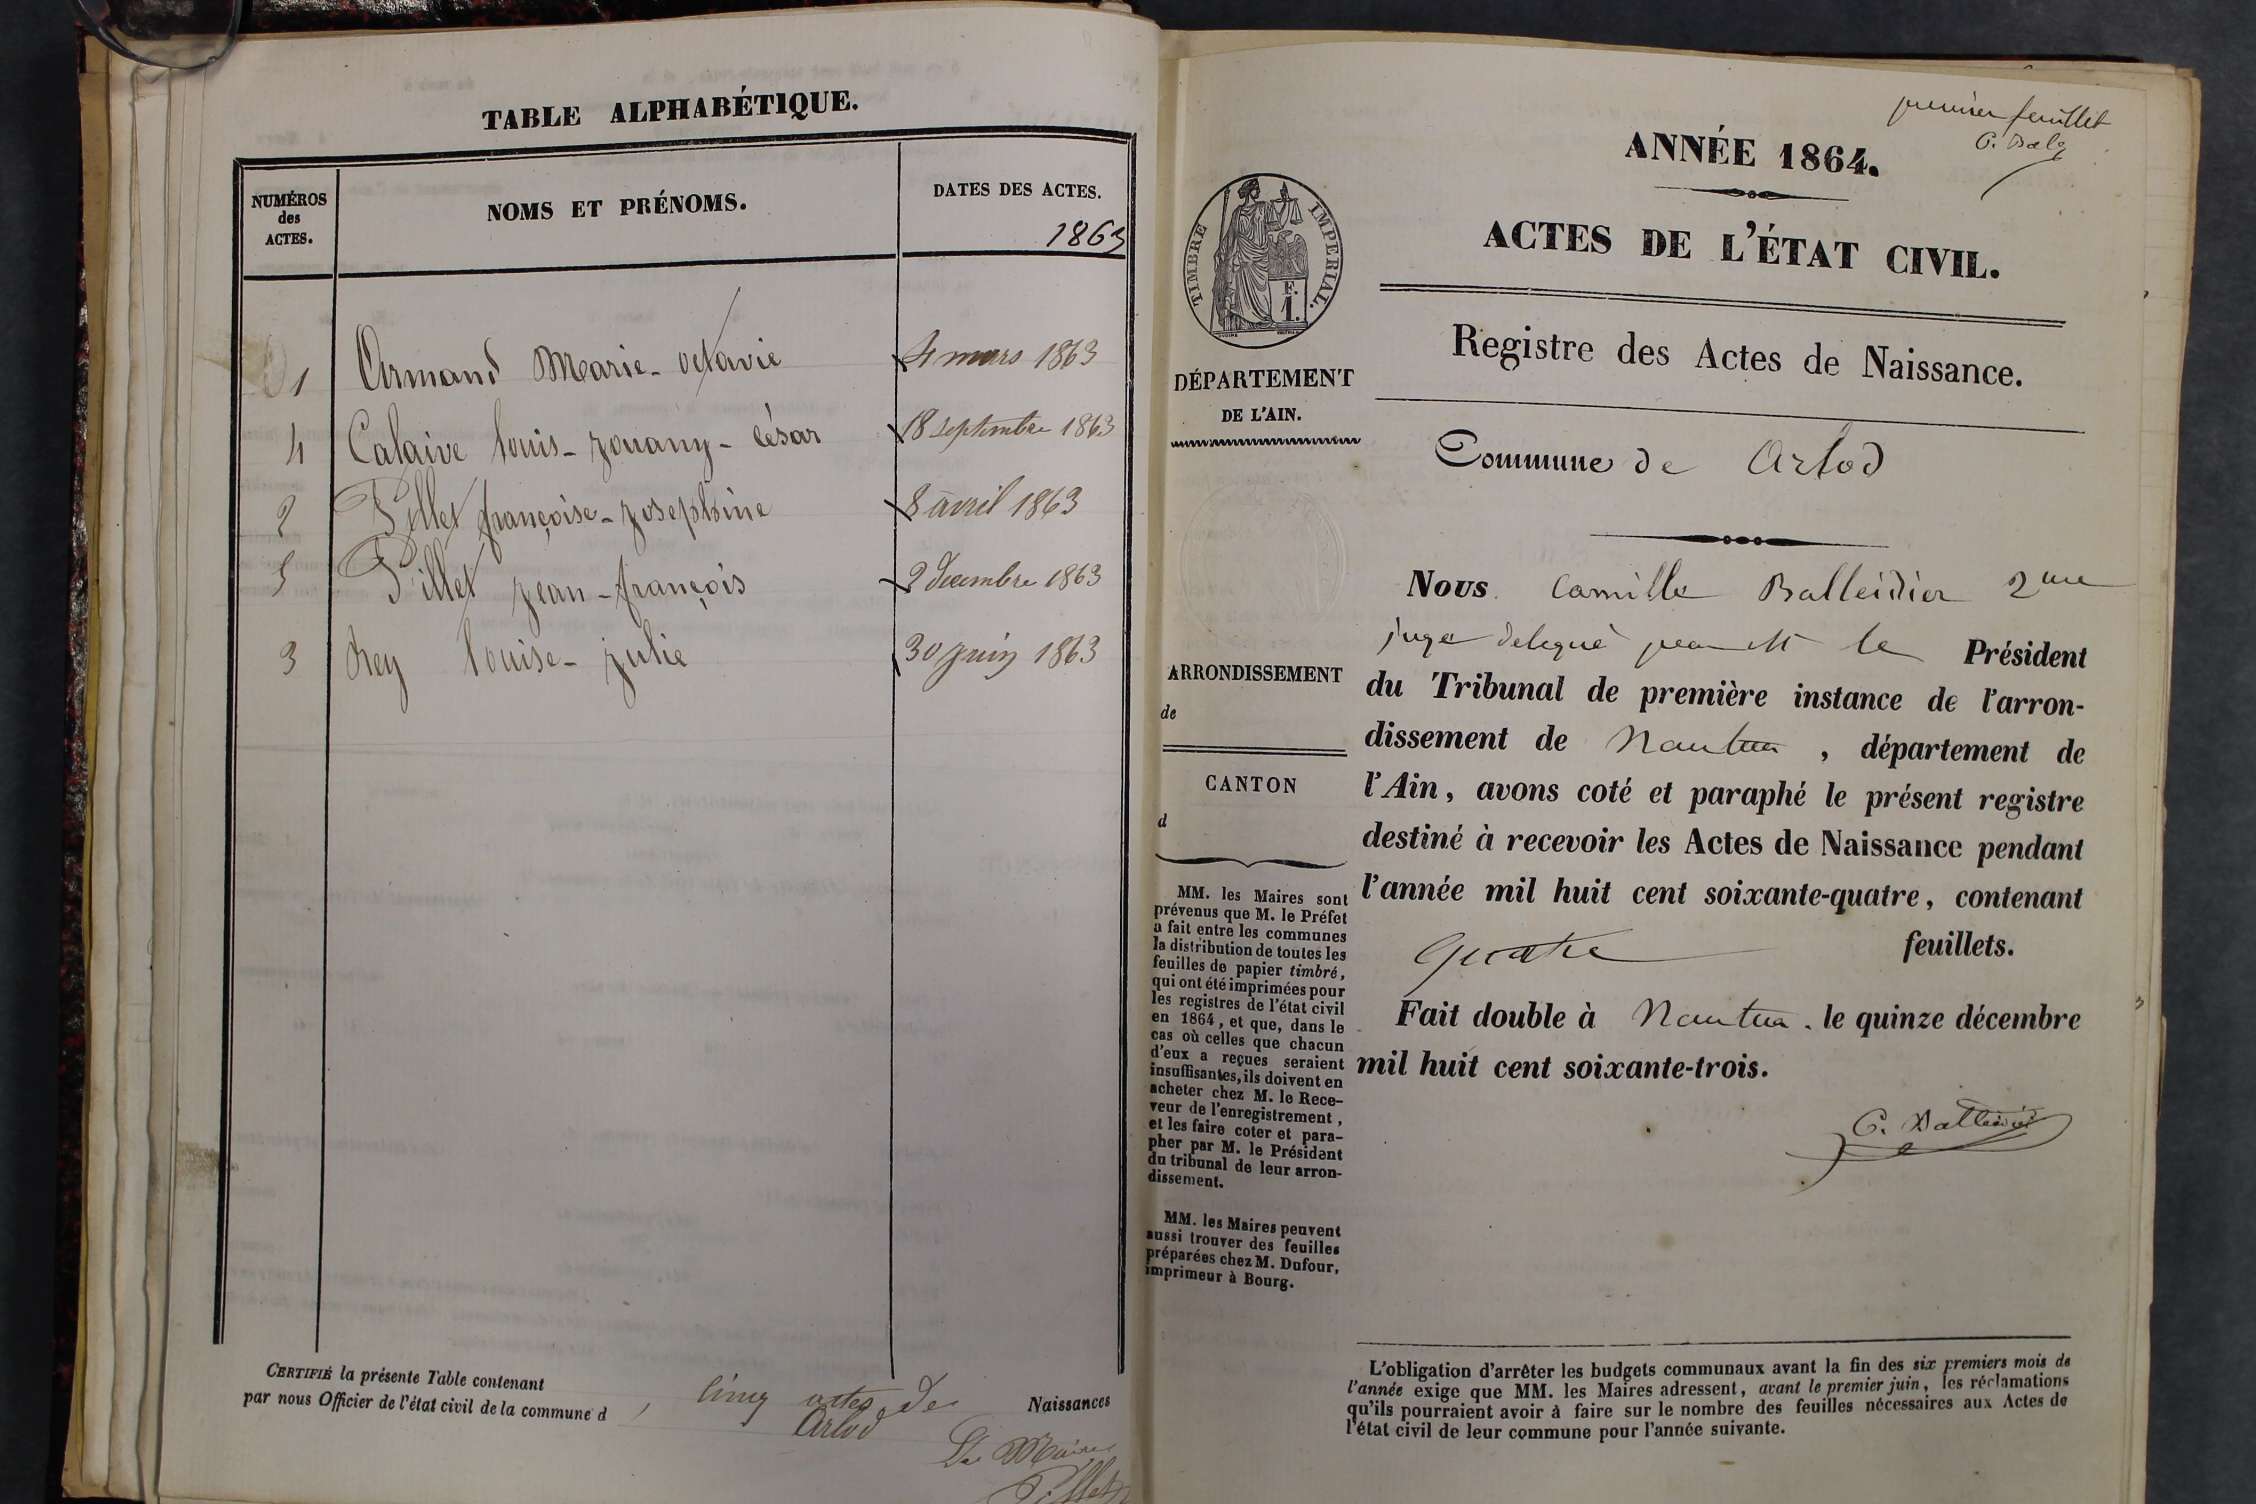 TABLE ALPHABÉTIQUE.
NUMÉROS
des
ACTES.
NOMS ET PRÉNOMS.
DATES DES ACTES.
1863
1 Armand Marie-octavie 4 mars 1863
4 Calaive louis-jouany-césar 18 septembre 1863
2 Pillet françoise-josephine 8 avril 1863
5 Pillet jean-françois 2 decembre 1863
3 Rey louise-julie 30 juin 1863
CERTIFIÉ la présente Table contenant cinq actes de Naissances
par nous Officier de l'état civil de la commune d Arlod
Le Maire
Pillet
premier feuillet
C. Bal
ANNÉE 1864.
ACTES DE L'ÉTAT CIVIL.
TIMBRE IMPERIAL.
F.
1.
DÉPARTEMENT
DE L'AIN.
ARRONDISSEMENT
de
CANTON
d
MM. les Maires sont
prévenus que M. le Préfet
a fait entre les communes
la distribution de toutes les
feuilles de papier timbré,
qui ont été imprimées pour
les registres de l'état civil
en 1864, et que, dans le
cas où celles que chacun
d'eux a reçues seraient
insuffisantes, ils doivent en
acheter chez M. le Rece-
veur de l'enregistrement,
et les faire coter et para-
pher par M. le Président
du tribunal de leur arron-
dissement.
MM. les Maires peuvent
aussi trouver des feuilles
préparées chez M. Dufour,
imprimeur à Bourg.
Registre des Actes de Naissance.
Commune de Arlod
Nous Camille Balleidier 2me
juge delegué le Président
du Tribunal de première instance de l'arron-
dissement de Nantua, département de
l'Ain, avons coté et paraphé le présent registre
destiné à recevoir les Actes de Naissance pendant
l'année mil huit cent soixante-quatre, contenant
quatre feuillets.
Fait double à Nantua. le quinze décembre
mil huit cent soixante-trois.
C. Balleidier
L'obligation d'arrêter les budgets communaux avant la fin des six premiers mois de
l'année exige que MM. les Maires adressent, avant le premier juin, les réclamations
qu'ils pourraient avoir à faire sur le nombre des feuilles nécessaires aux Actes de
l'état civil de leur commune pour l'année suivante.